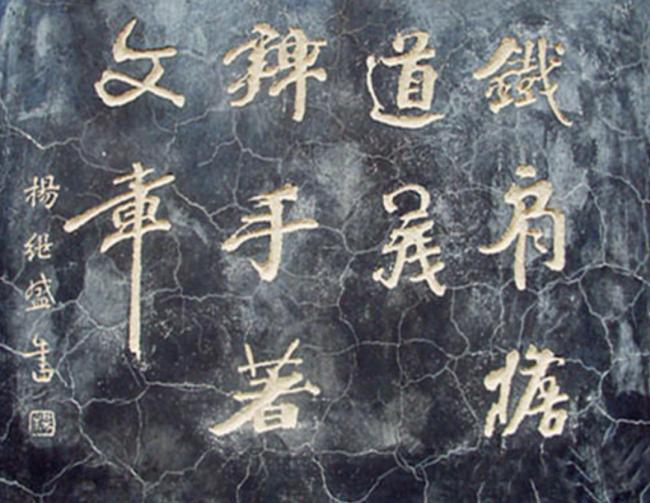 鐵肩擔
道義
辣手著
文章
楊継盛書